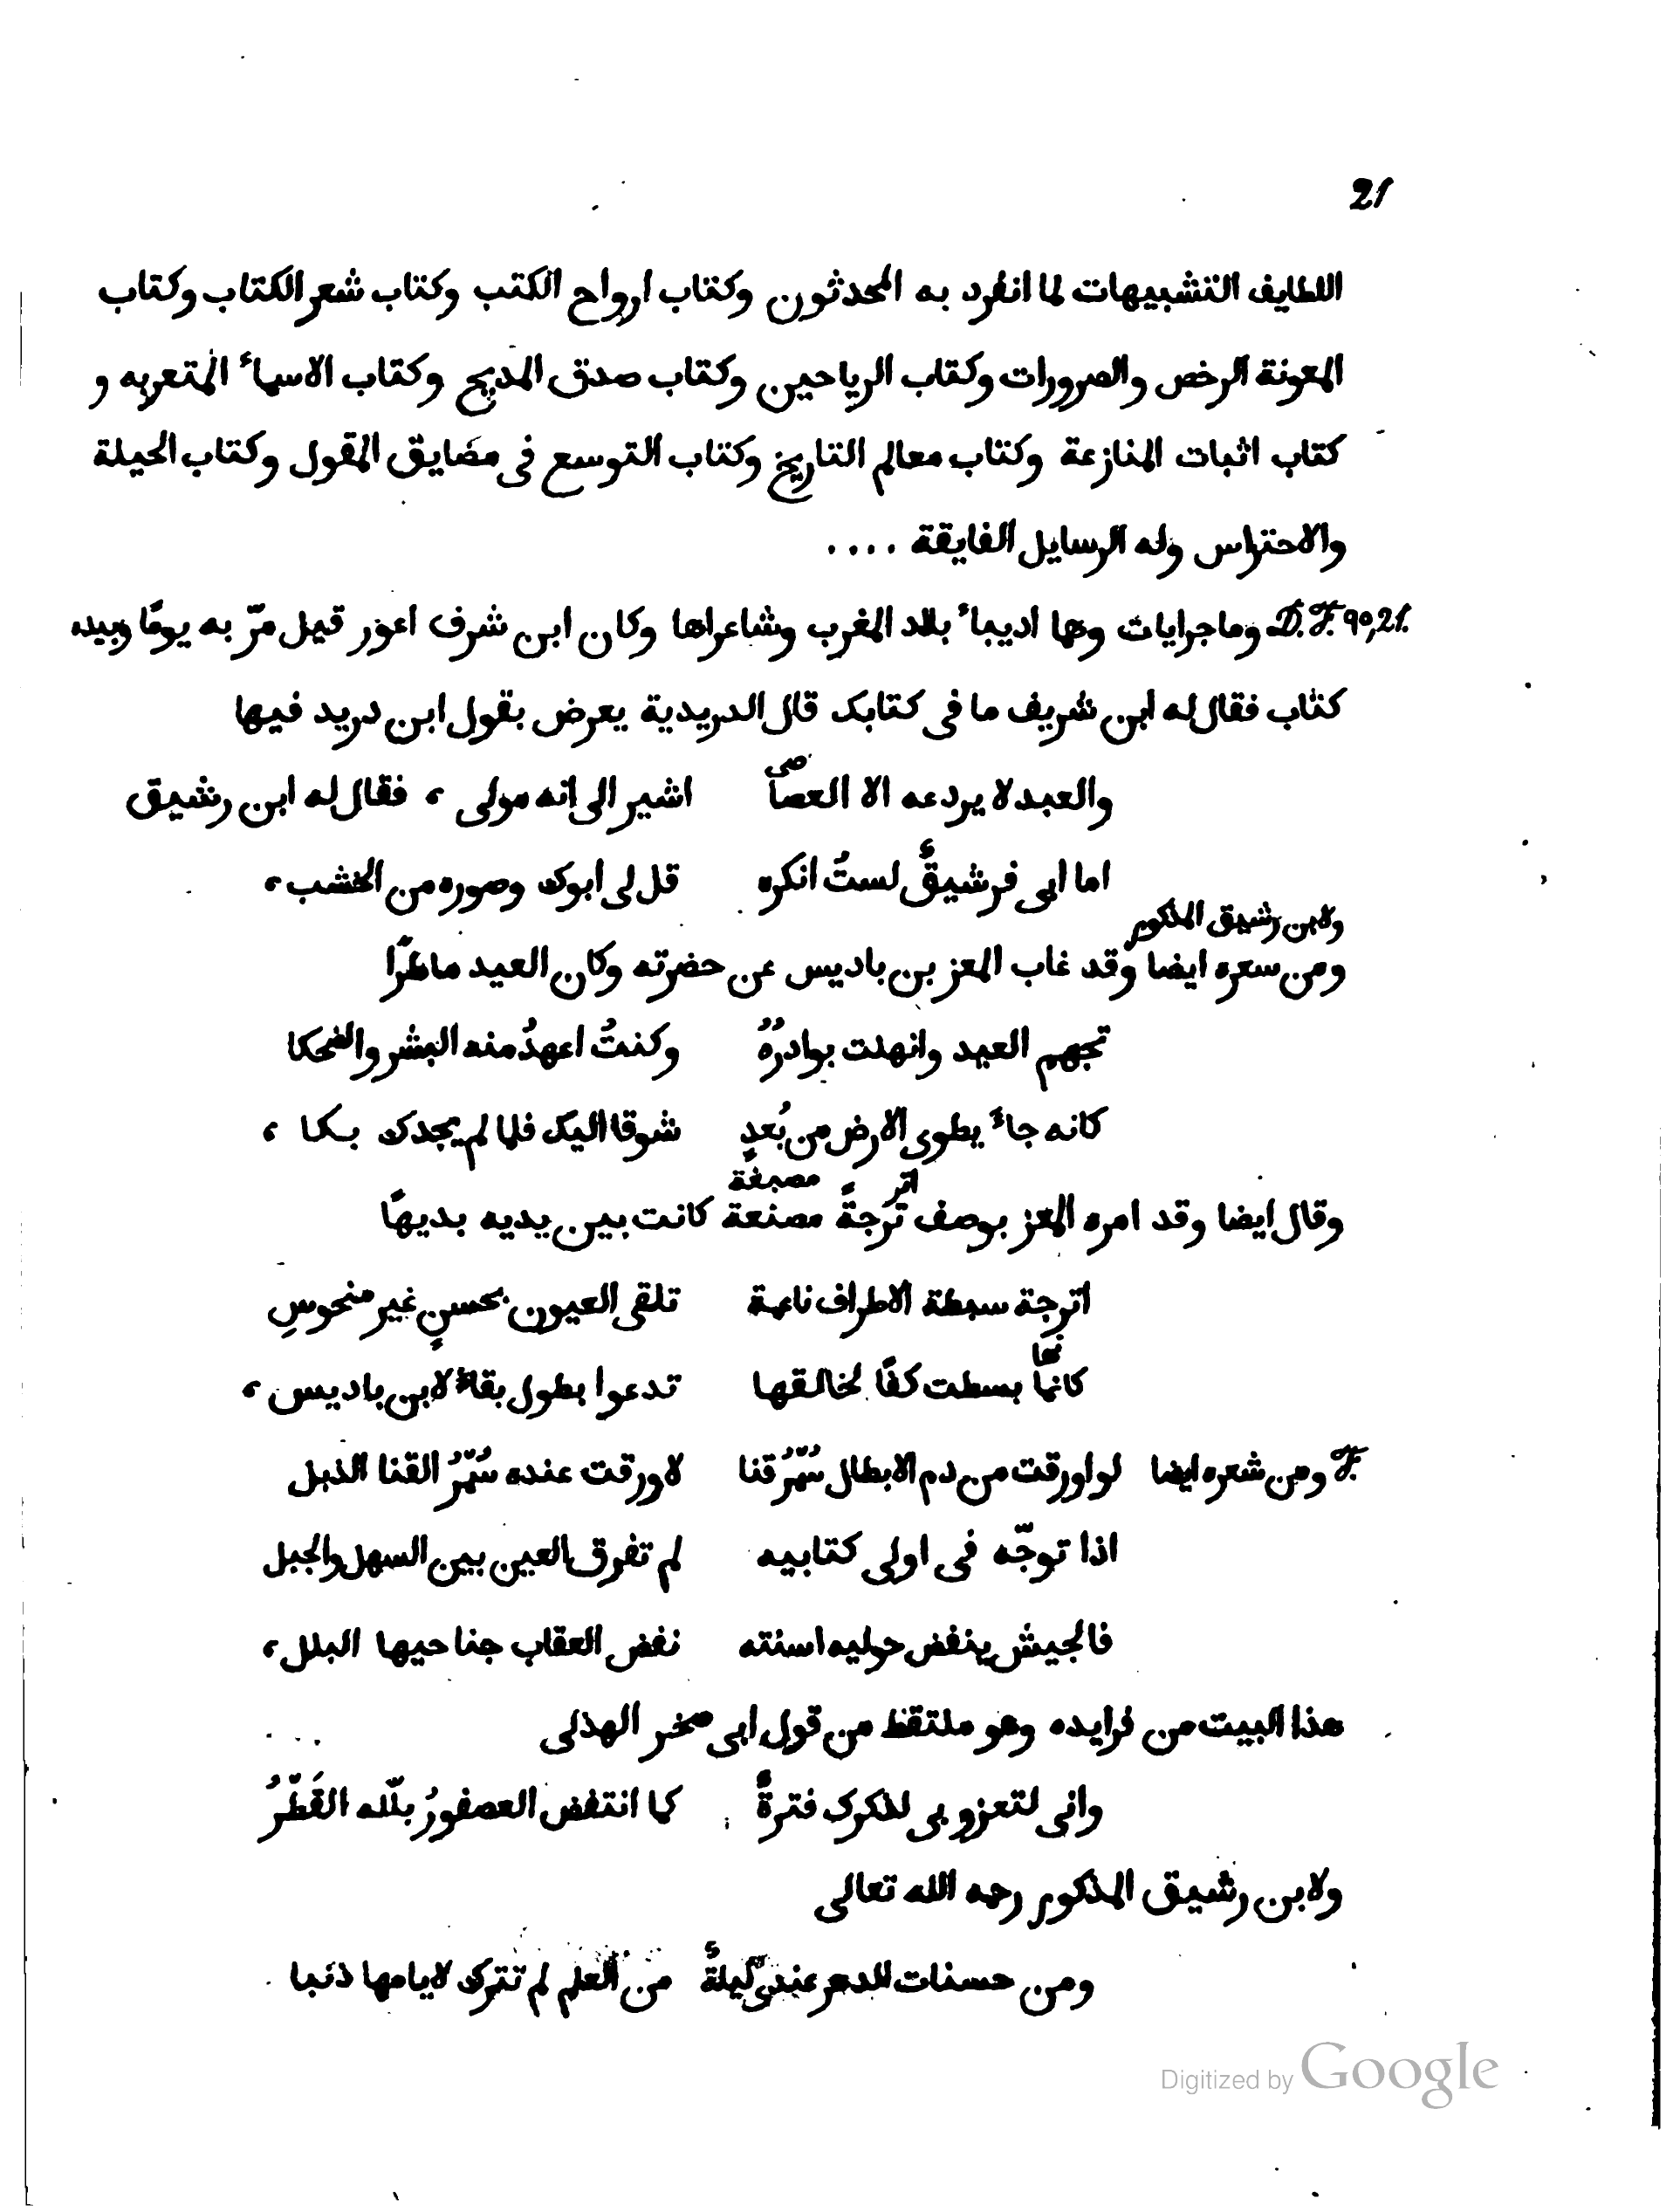 21
اللطايف التشبيهات لما انفرد به المحدثون وكتاب ارواح الكتب وكتاب شعر الكتاب وكتاب
المعونة الرخص والصرورات وكتاب الرياحين وكتاب صدق المديح وكتاب الاسمأ المتعربه و
كتاب اثبات المنازعة وكتاب معالم التاريخ وكتاب التوسع فى مضايق المقول وكتاب الحيلة
والاحتراس وله الرسايل الفايقة ....
D.F. 90,21. وماجرايات وهما اديبأ بلاد المغرب وشاعراها وكان ابن شرف اعور قيل مرّ به يومًا وبيده
كتاب فقال له ابن شريف ما فى كتابك قال الدريدية يعرض بقول ابن دريد فيها
صى
والعبد لا يردعه الا العصا اشير الى انه مولى ، فقال له ابن رشيق
اما ابى فرشيقٌ لستُ انكره قل لى ابوك وصوره من الخشب ،
ولابن رشيق المذكور
ومن سعره ايضا وقد غاب المعز بن باديس عن حضرته وكان العيد ماطرًا
تجهم العيد وانهلت بوادرُهُ وكنتُ اعهدُ منه البشر والضحكا
كانه جأ يطوى الارض من بُعدٍ شوقا اليك فلما لم يجدك بكا ،
اتر مصبغة
وقال ايضا وقد امره المعز بوصف ترجةً مصنعة كانت بين يديه بديهًا
اترجة سبطة الاطراف ناعمة تلقى العيون بحسنٍ غير منحوسِ
نما
كانما بسطت كفًا لخالقها تدعوا بطول بقأ لابن باديس ،
F. ومن شعره ايضا لو اورقت من دم الابطال سُمْرُ قنا لاورقت عنده سُمْرُ القنا الذبل
اذا توجّه فى اولى كتابيه لم تفرق العين بين السهل والجبل
فالجيش ينفض حوليه اسنته نفض العقاب جناحيها البلل ،
هذا البيت من فرايده وهو ملتقظ من قول ابى صخر الهذلى ...
وانى لتعزو بى لذكرك فترةٌ كما انتفض العصفورُ بلّله القَطْرُ
ولابن رشيق المذكور رحمه الله تعالى
ومن حسنات الدهر عندى ليلةٌ من العلم لم تترك لايامها ذنبا
Digitized by Google